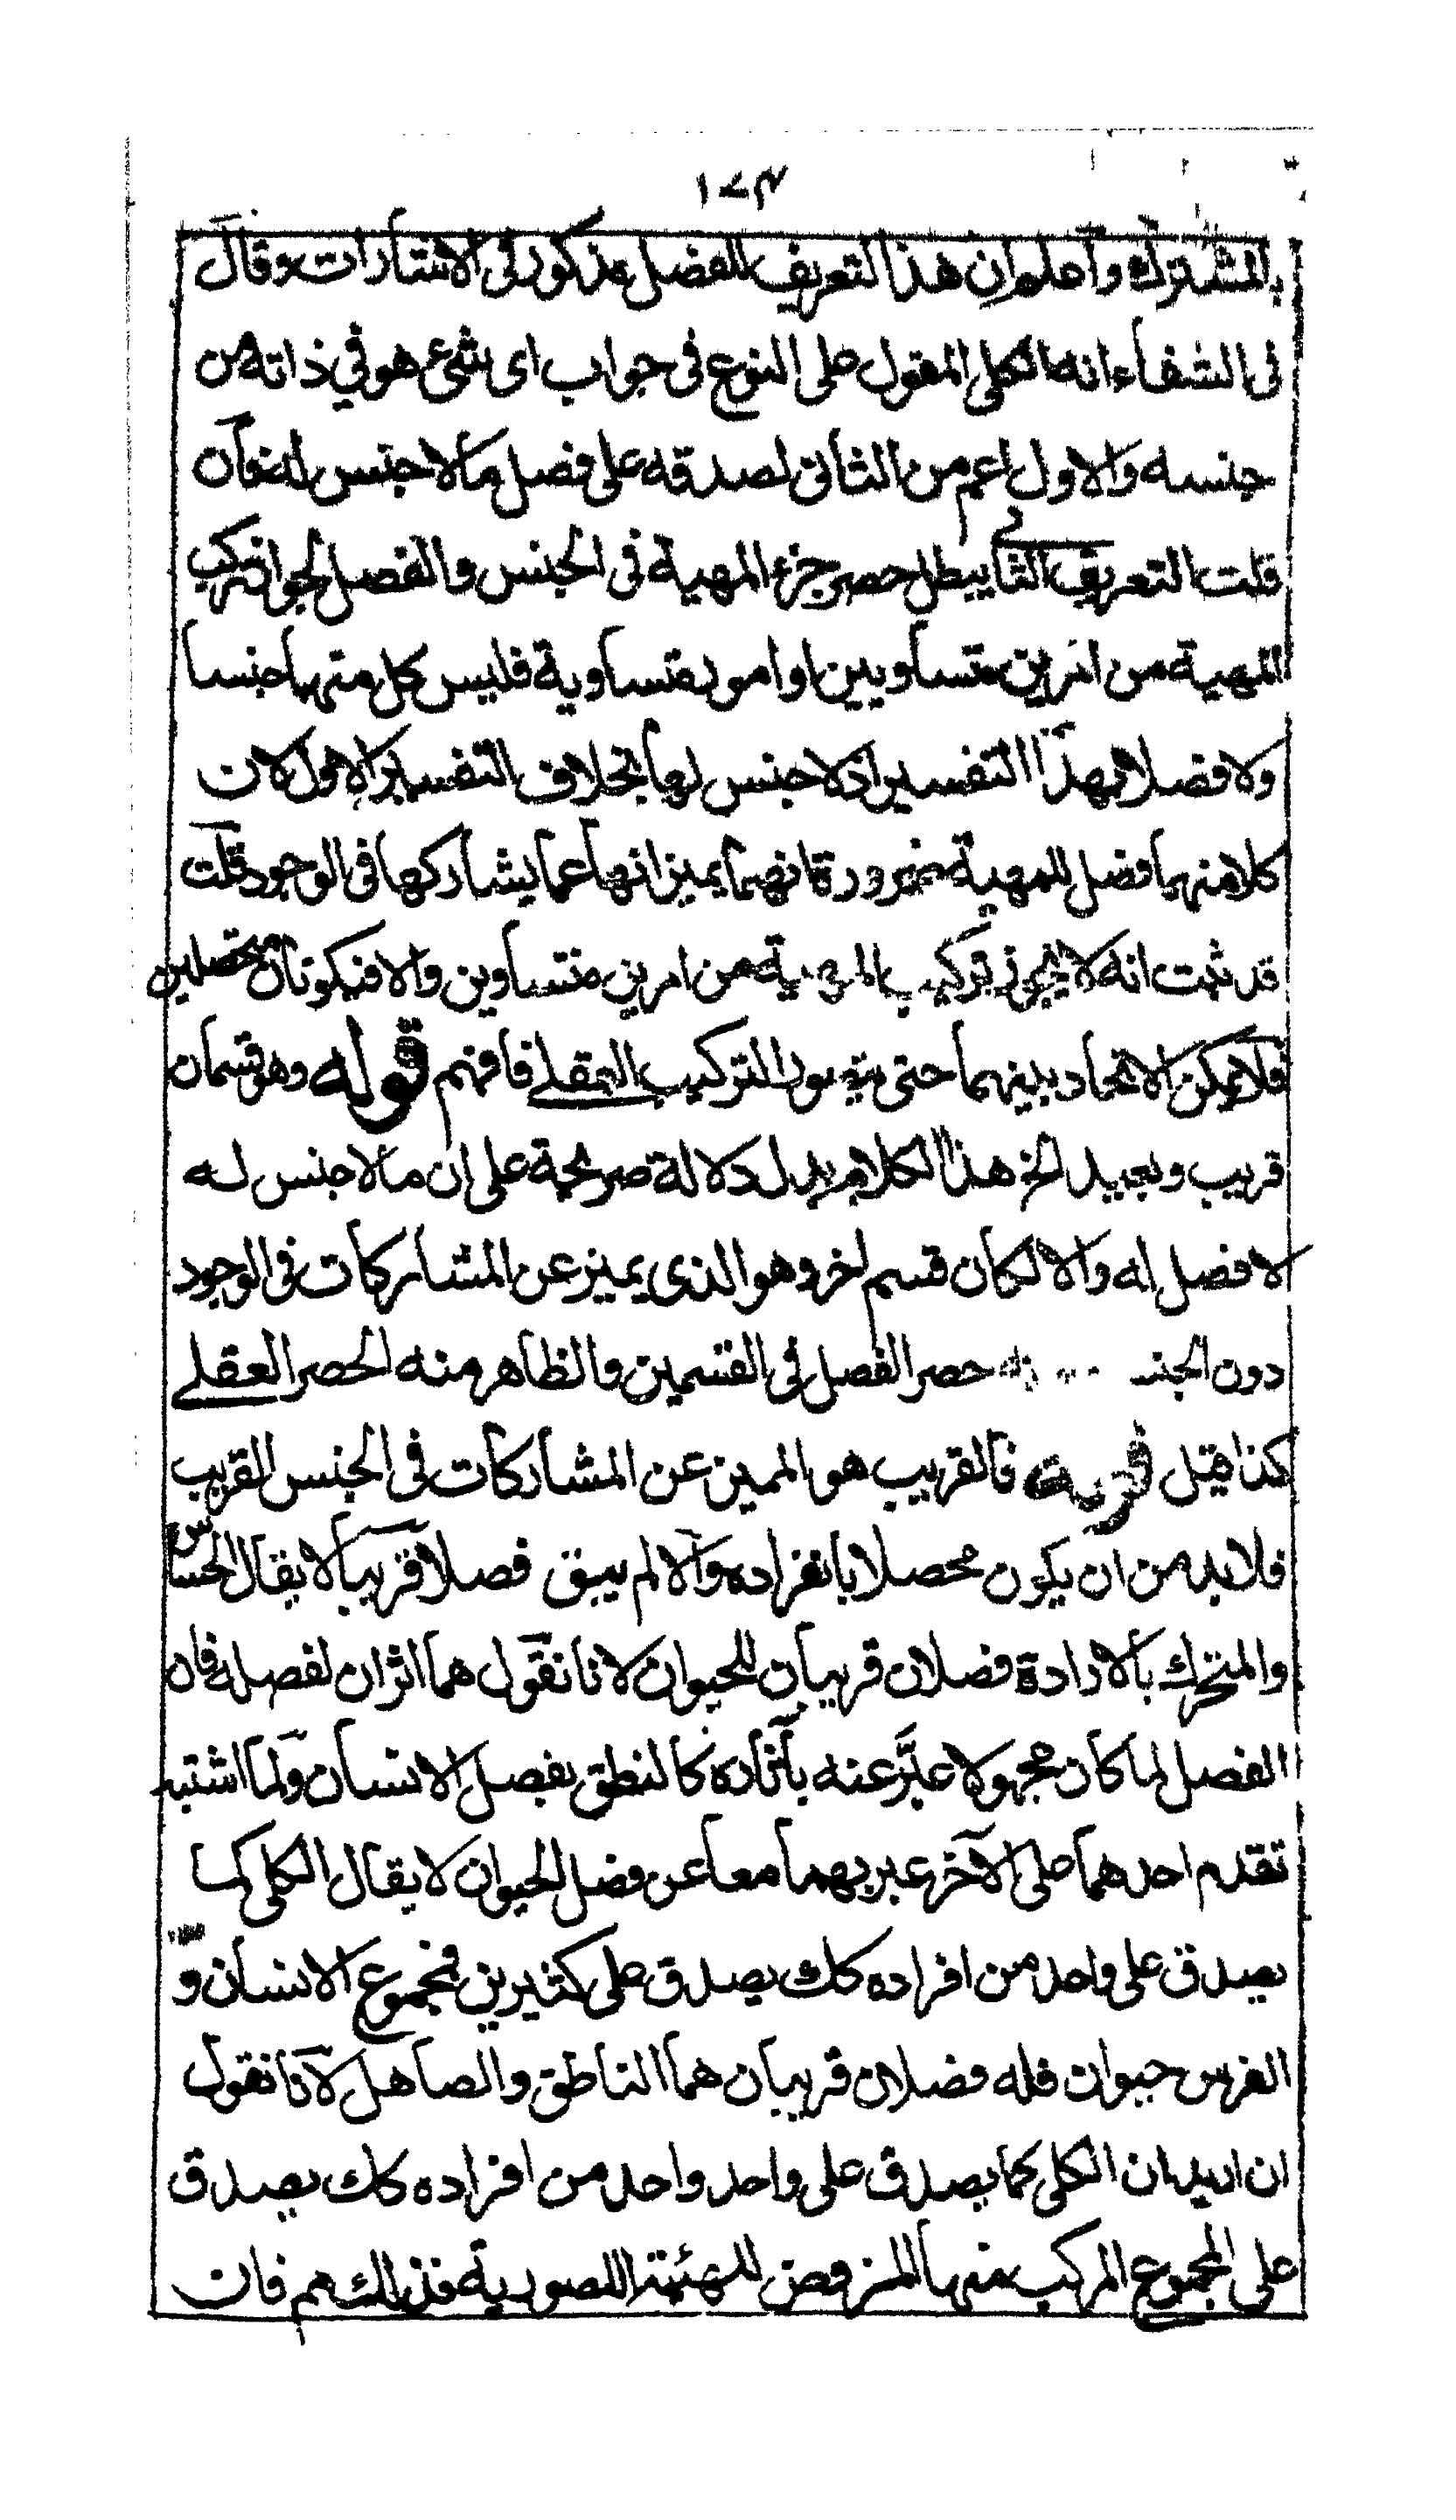 ١٧٣
بالمشترك واعلم ان هذا التعريف للفصل مذكور في الاشارات وقال
في الشفاء انه الكلي المقول على النوع في جواب اي شيء هو في ذاته من
جنسه والاول اعم من الثاني لصدقه على فصل مالا جنس له فان
قلت التعريف الثاني يبطل حصر جزء المهية في الجنس والفصل لجواز تركب
المهية من امرين متساويين او امور متساوية فليس كل منهما جنسا
ولا فصلا بهذا التفسير اذ لا جنس لها بخلاف التفسير الاول لان
كلا منهما فصل للمهية ضرورة انهما يميزانها عما يشاركها في الوجود قلت
قد ثبت انه لا يجوز تركيب المهية من امرين متساوين والا فيكونان متحصلين
فلا يمكن الاتحاد بينهما حتى التركيب العقلي فافهم قوله وهو قسمان
قريب وبعيد الخ هذا الكلام يدل دلالة صريحة على ان مالا جنس له
لا فصل له والا لكان قسم اخر وهو الذي يميز عن المشاركات في الوجود
دون الجنس حصر الفصل في القسمين والظاهر منه الحصر العقلي
كذا قيل فالقريب هو المميز عن المشاركات في الجنس القريب
فلا بد من ان يكون محصلا بانفراده والا لم يبق فصلا قريبا لا يقال الحساس
والمتحرك بالارادة فصلان قريبان للحيوان لانا نقول هما اثران لفصله فان
الفصل لما كان مجهولا عبّر عنه بآثاره كالنطق بفصل الانسان ولما اشتبه
تقدم احدهما على الآخر عبر بهما معا عن فصل الحيوان لا يقال الكلي كما
يصدق على واحد من افراده كك يصدق على كثيرين فمجموع الانسان و
الفرس حيوان فله فصلان قريبان هما الناطق والصاهل لانا نقول
ان اريد ان الكلي كما يصدق على واحد واحد من افراده كك يصدق
على المجموع المركب منها المعروض للهيئة الصورية فذلك مم فان